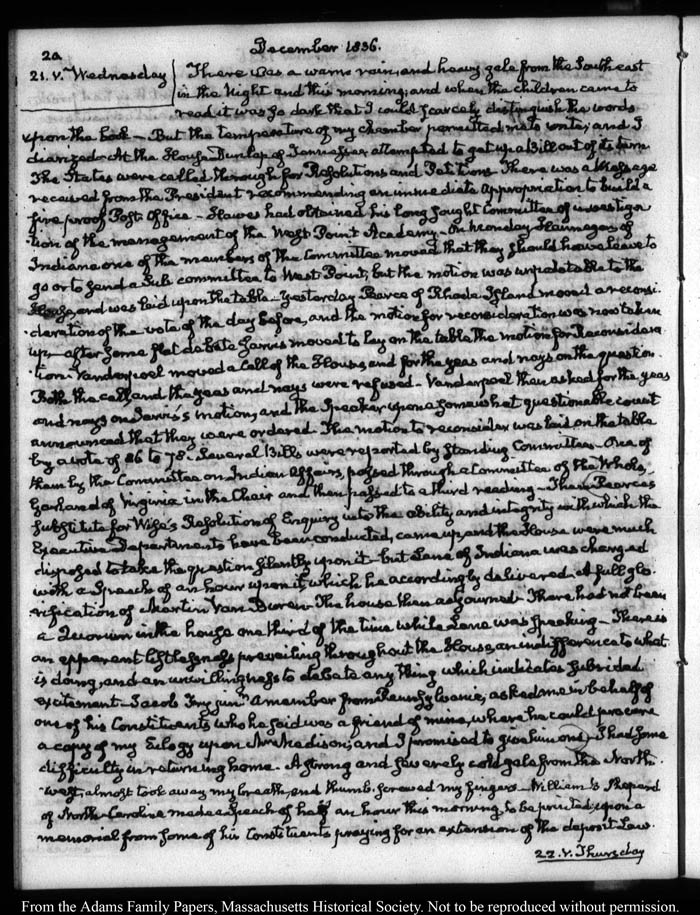 20
December 1836.
21. V. Wednesday
There was a warm rain, and heavy gale from the Southeast
in the Night and this morning, and when the children came to
read it was so dark that I could scarcely distinguish the words
upon the book – But the temperature of my chamber permitted me to write, and I
diarized. At the House Dunlap of Tennessee attempted to get up a Bill out of its turn.
The States were called through for Resolutions and Petitions. There was a Message
received from the President recommending an immediate appropriation to build a
fire proof Post Office – Hawes had obtained his long sought Committee of investiga
tion of the management of the West Point Academy – On Monday Hannegan of
Indiana one of the members of the Committee moved that they should have leave to
go or to send a Sub committee to West Point, but the motion was unpalatable to the
House, and was laid upon the table – Yesterday Pearce of Rhode Island moved a reconsi
deration of the vote of the day before, and the motion for reconsideration was now taken
up – after some flat debate Jarvis moved to lay on the table the motion for Reconsidera
tion. Vanderpoel moved a Call of the House, and for the yeas and nays on the question.
Both the call and the yeas and nays were refused – Vanderpoel then asked for the yeas
and nays on Jarvis's motion, and the Speaker upon a somewhat questionable count
announced that they were ordered. The motion to reconsider was laid on the table
by a vote of 86 to 78. Several Bills were reported by standing Committees – One of
them by the Committee on Indian Affairs, passed through a Committee of the Whole,
Garland of Virginia in the Chair and then passed to a third reading – Then Pearce's
substitute for Wise's Resolution of Enquiry into the ability and integrity with which the
Executive Departments have been conducted, came up and the House were much
disposed to take the question silently upon it – but Lane of Indiana was charged
with a Speech of an hour upon it, which he accordingly delivered. A full glo
rification of Martin Van Buren. The house then adjourned. There had not been
a Quorum in the house one third of the time while Lane was speaking – There is
an apparent listlessness prevailing throughout the House, an indifference to what
is doing, and an unwillingness to debate any thing which indicates subsided
excitement – Jacob Fry junr. a member from Pennsylvania, asked me in behalf of
one of his Constituents who he said was a friend of mine, where he could procure
a copy of my Eulogy upon Mr Madison; and I promised to give him one. I had some
difficulty in returning home. A strong and severely cold gale from the North
west, almost took away my breath, and thumb-screwed my fingers – William B Shepard
of North-Carolina made a Speech of half an hour this morning, to be printed, upon a
memorial from some of his Constituents praying for an extension of the deposit Law.
22. V. Thursday
From the Adams Family Papers, Massachusetts Historical Society. Not to be reproduced without permission.